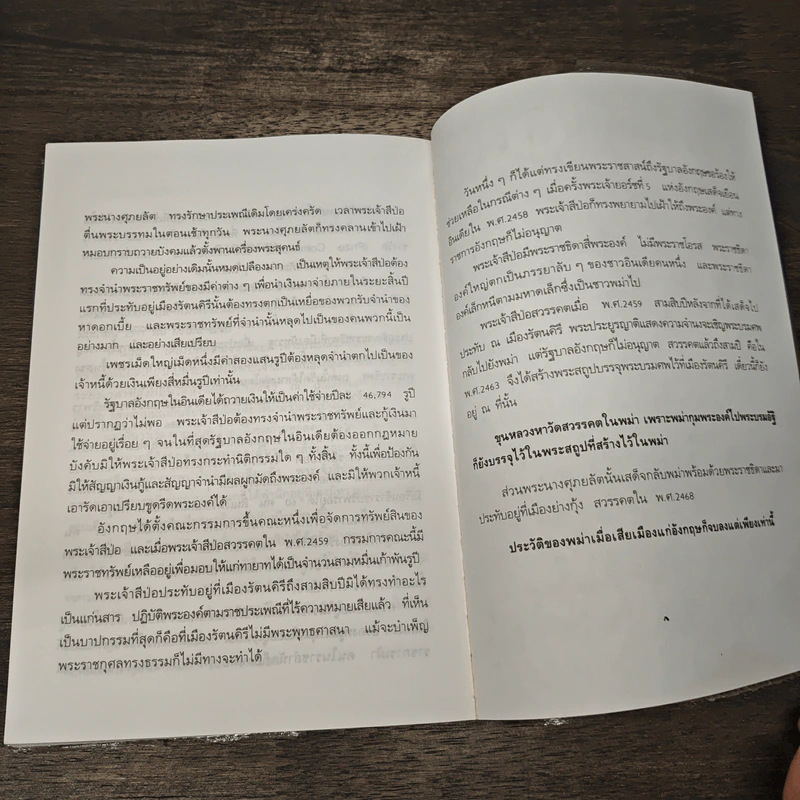 พระนางศุภยลัต ทรงรักษาประเพณีเดิมโดยเคร่งครัด เวลาพระเจ้าสีป่อ
ตื่นพระบรรทมในตอนเช้าทุกวัน พระนางศุภยลัตก็ทรงคลานเข้าไปเฝ้า
หมอบกราบถวายบังคมแล้วตั้งพานเครื่องพระสุคนธ์
ความเป็นอยู่อย่างเดิมนั้นหมดเปลืองมาก เป็นเหตุให้พระเจ้าสีป่อต้อง
ทรงจำนำพระราชทรัพย์ของมีค่าต่าง ๆ เพื่อนำเงินมาจ่ายภายในระยะสิบปี
แรกที่ประทับอยู่เมืองรัตนคิรีนั้นต้องทรงตกเป็นเหยื่อของพวกรับจำนำของ
หาดอกเบี้ย และพระราชทรัพย์ที่จำนำนั้นหลุดไปเป็นของคนพวกนี้เป็น
อย่างมาก และอย่างเสียเปรียบ
เพชรเม็ดใหญ่เม็ดหนึ่งมีค่าสองแสนรูปีต้องหลุดจำนำตกไปเป็นของ
เจ้าหนี้ด้วยเงินเพียงสี่หมื่นรูปีเท่านั้น
รัฐบาลอังกฤษในอินเดียได้ถวายเงินให้เป็นค่าใช้จ่ายปีละ 46,794 รูปี
แต่ปรากฏว่าไม่พอ พระเจ้าสีป่อต้องทรงจำนำพระราชทรัพย์และกู้เงินมา
ใช้จ่ายอยู่เรื่อย ๆ จนในที่สุดรัฐบาลอังกฤษในอินเดียต้องออกกฎหมาย
บังคับมิให้พระเจ้าสีป่อทรงกระทำนิติกรรมใด ๆ ทั้งสิ้น ทั้งนี้เพื่อป้องกัน
มิให้สัญญาเงินกู้และสัญญาจำนำมีผลผูกมัดถึงพระองค์ และมิให้พวกเจ้าหนี้
เอารัดเอาเปรียบขูดรีดพระองค์ได้
อังกฤษได้ตั้งคณะกรรมการขึ้นคณะหนึ่งเพื่อจัดการทรัพย์สินของ
พระเจ้าสีป่อ และเมื่อพระเจ้าสีป่อสวรรคตใน พ.ศ.2459 กรรมการคณะนี้มี
พระราชทรัพย์เหลืออยู่เพื่อมอบให้แก่ทายาทได้เป็นจำนวนสามหมื่นเก้าพันรูปี
พระเจ้าสีป่อประทับอยู่ที่เมืองรัตนคิรีถึงสามสิบปีมิได้ทรงทำอะไร
เป็นแก่นสาร ปฏิบัติพระองค์ตามราชประเพณีที่ไร้ความหมายเสียแล้ว ที่เห็น
เป็นบาปกรรมที่สุดก็คือที่เมืองรัตนคิรีไม่มีพระพุทธศาสนา แม้จะบำเพ็ญ
พระราชกุศลทรงธรรมก็ไม่มีทางจะทำได้
วันหนึ่ง ๆ ก็ได้แต่ทรงเขียนพระราชสาสน์ถึงรัฐบาลอังกฤษขอร้องให้
ช่วยเหลือในกรณีต่าง ๆ เมื่อครั้งพระเจ้ายอร์ชที่ 5 แห่งอังกฤษเสด็จเยือน
อินเดียใน พ.ศ.2458 พระเจ้าสีป่อก็ทรงพยายามไปเฝ้าให้ถึงพระองค์ แต่ทาง
ราชการอังกฤษก็ไม่อนุญาต
พระเจ้าสีป่อมีพระราชธิดาสี่พระองค์ ไม่มีพระราชโอรส พระราชธิดา
องค์ใหญ่ตกเป็นภรรยาลับ ๆ ของชาวอินเดียคนหนึ่ง และพระราชธิดา
องค์เล็กหนีตามมหาดเล็กซึ่งเป็นชาวพม่าไป
พระเจ้าสีป่อสวรรคตเมื่อ พ.ศ.2459 สามสิบปีหลังจากที่ได้เสด็จไป
ประทับ ณ เมืองรัตนคิรี พระประยูรญาติแสดงความจำนงจะเชิญพระบรมศพ
กลับไปยังพม่า แต่รัฐบาลอังกฤษก็ไม่อนุญาต สวรรคตแล้วถึงสามปี คือใน
พ.ศ.2463 จึงได้สร้างพระสถูปบรรจุพระบรมศพไว้ที่เมืองรัตนคิรี เดี๋ยวนี้ก็ยัง
อยู่ ณ ที่นั้น
ขุนหลวงหาวัดสวรรคตในพม่า เพราะพม่ากุมพระองค์ไปพระบรมอัฐิ
ก็ยังบรรจุไว้ในพระสถูปที่สร้างไว้ในพม่า
ส่วนพระนางศุภยลัตนั้นเสด็จกลับพม่าพร้อมด้วยพระราชธิดาและมา
ประทับอยู่ที่เมืองย่างกุ้ง สวรรคตใน พ.ศ.2468
ประวัติของพม่าเมื่อเสียเมืองแก่อังกฤษก็จบลงแต่เพียงเท่านี้